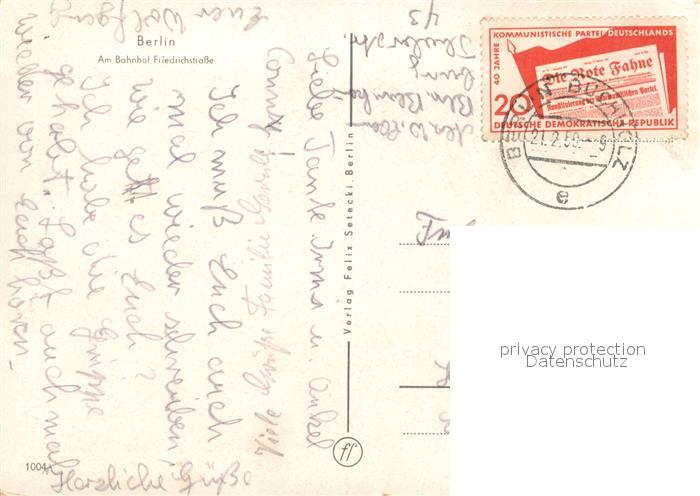 Berlin
Am Bahnhof Friedrichstraße
43
Liebe Tante Irms u. Onkel
Conny!
Ich muß Euch auch
mal wieder schreiben,
wie geht es Euch?
Ich habe die Grippe
gehabt. Laßt auch mal
wieder von Euch hören.
Herzliche Grüße
Euer Wolfgang
Viele Grüße Familie
Verlag Felix Setecki, Berlin
ff
1004
40 JAHRE KOMMUNISTISCHE PARTEI DEUTSCHLANDS
Die Rote Fahne
20
DEUTSCHE DEMOKRATISCHE REPUBLIK
BERLIN BUCHHOLZ
21.2.59
e
privacy protection
Datenschutz